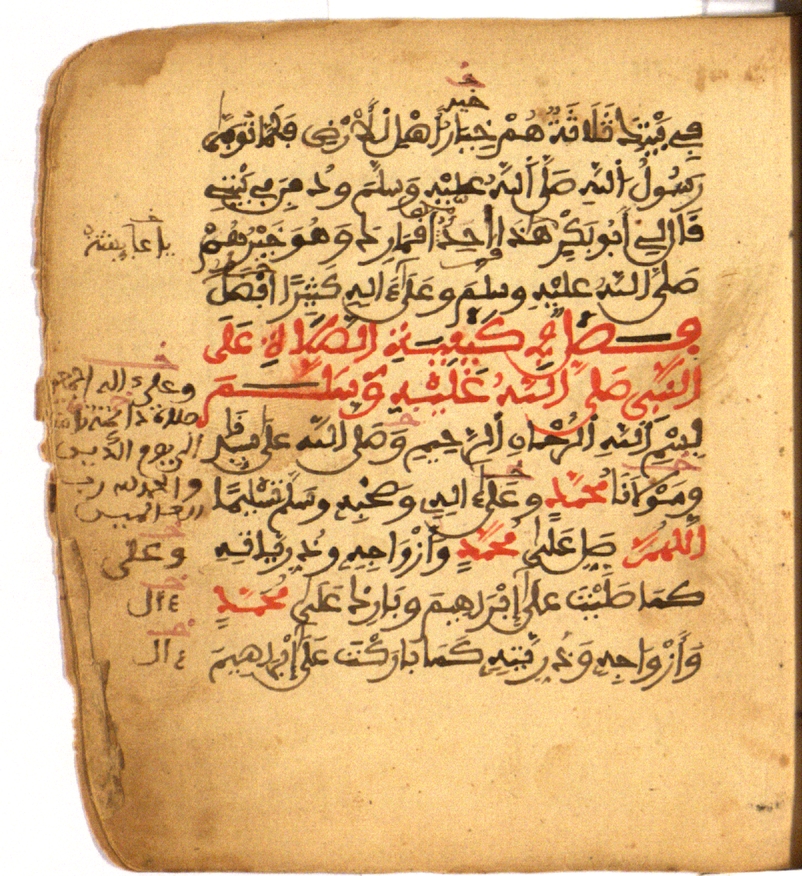 خير
في بيتك ثلاثة هم خيار أهل الأرض فلما توفي
رسول الله صلى الله عليه وسلم ودفن في بيتي
قال لي أبو بكر هذا واحد أقمارك وهو خيرهم
صلى الله عليه وسلم وعلى ءاله كثيرا
فصل في كيفية الصلاة على
النبي صلى الله عليه وسلم
بسم الله الرحمان الرحيم وصلى الله على سيدنا
ومولانا محمد وعلى ءاله وصحبه وسلم تسليما
اللهم صل على محمد وأزواجه وذريته
كما صليت على إبراهيم وبارك على محمد
وأزواجه وذريته كما باركت على إبراهيم
يا عايشة
وعلى ءاله
صلاة دائمة
إلى يوم الدين
والحمد لله رب
العالمين
وعلى
ءال
ءال